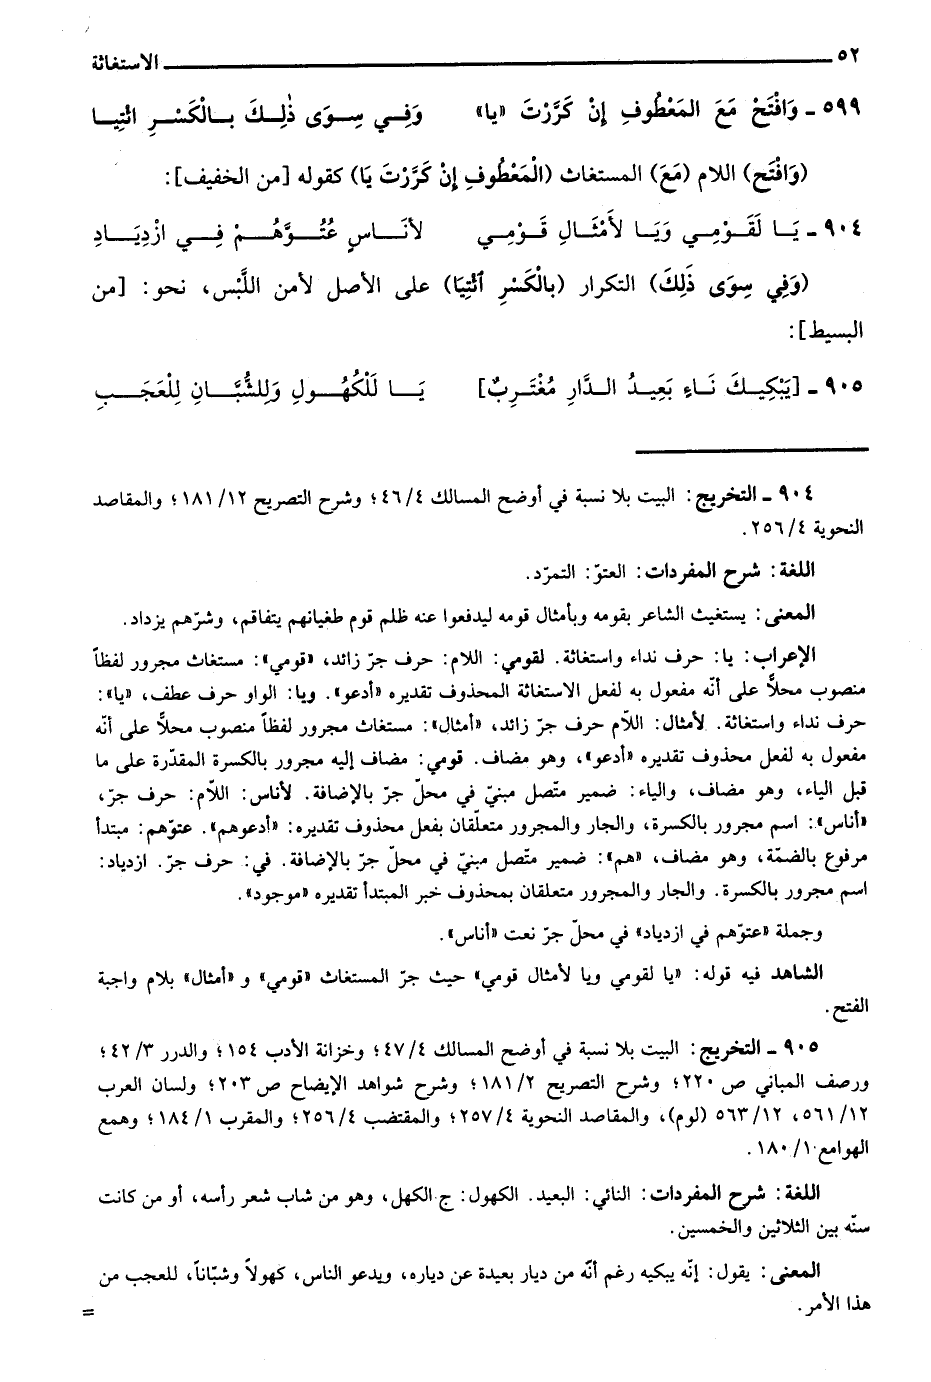 ٥٢ الاستغاثة
٥٩٩ ـ وَافْتَحْ مَعَ المَعْطُوفِ إِنْ كَرَّرْتَ «يا» وَفِي سِوَى ذٰلِكَ بِالْكَسْرِ ائْتِيا
(وَافْتَح) اللام (مَعَ) المستغاث (الْمَعْطُوفِ إِنْ كَرَّرْتَ يَا) كقوله [من الخفيف]:
٩٠٤ ـ يَا لَقَوْمِي وَيَا لَأَمْثَالِ قَوْمِي لأُنَاسٍ عُتُوُّهُمْ فِي ازْدِيَادِ
(وَفِي سِوَى ذَلِكَ) التكرار (بالْكَسْرِ ٱئْتِيَا) على الأصل لأمن اللَّبْس، نحو: [من
البسيط]:
٩٠٥ ـ [يَبْكِيكَ نَاءٍ بَعِيدُ الدَّارِ مُغْتَرِبٌ] يَا لَلْكُهُولِ وَلِلشُّبَّانِ لِلْعَجَبِ
٩٠٤ ـ التخريج: البيت بلا نسبة في أوضح المسالك ٤/ ٤٦؛ وشرح التصريح ١٢/ ١٨١؛ والمقاصد
النحوية ٤/ ٢٥٦.
اللغة: شرح المفردات: العتوّ: التمرّد.
المعنى: يستغيث الشاعر بقومه وبأمثال قومه ليدفعوا عنه ظلم قوم طغيانهم يتفاقم، وشرّهم يزداد.
الإعراب: يا: حرف نداء واستغاثة. لقومي: اللام: حرف جرّ زائد، «قومي»: مستغاث مجرور لفظاً
منصوب محلاًّ على أنّه مفعول به لفعل الاستغاثة المحذوف تقديره «أدعو». ويا: الواو حرف عطف، «يا»:
حرف نداء واستغاثة. لأمثال: اللاّم حرف جرّ زائد، «أمثال»: مستغاث مجرور لفظاً منصوب محلاًّ على أنّه
مفعول به لفعل محذوف تقديره «أدعو»، وهو مضاف. قومي: مضاف إليه مجرور بالكسرة المقدّرة على ما
قبل الياء، وهو مضاف، والياء: ضمير متّصل مبنيّ في محلّ جرّ بالإضافة. لأناس: اللاّم: حرف جرّ،
«أناس»: اسم مجرور بالكسرة، والجار والمجرور متعلّقان بفعل محذوف تقديره: «أدعوهم». عتوّهم: مبتدأ
مرفوع بالضمّة، وهو مضاف، «هم»: ضمير متّصل مبنيّ في محلّ جرّ بالإضافة. في: حرف جرّ. ازدياد:
اسم مجرور بالكسرة. والجار والمجرور متعلقان بمحذوف خبر المبتدأ تقديره «موجود».
وجملة «عتوّهم في ازدياد» في محلّ جرّ نعت «أناس».
الشاهد فيه قوله: «يا لقومي ويا لأمثال قومي» حيث جرّ المستغاث «قومي» و«أمثال» بلام واجبة
الفتح.
٩٠٥ ـ التخريج: البيت بلا نسبة في أوضح المسالك ٤/ ٤٧؛ وخزانة الأدب ١٥٤؛ والدرر ٣/ ٤٢؛
ورصف المباني ص ٢٢٠؛ وشرح التصريح ٢/ ١٨١؛ وشرح شواهد الإيضاح ص ٢٠٣؛ ولسان العرب
١٢/ ٥٦١، ١٢/ ٥٦٣ (لوم)، والمقاصد النحوية ٤/ ٢٥٧؛ والمقتضب ٤/ ٢٥٦؛ والمقرب ١/ ١٨٤؛ وهمع
الهوامع ١/ ١٨٠.
اللغة: شرح المفردات: النائي: البعيد. الكهول: ج الكهل، وهو من شاب شعر رأسه، أو من كانت
سنّه بين الثلاثين والخمسين.
المعنى: يقول: إنّه يبكيه رغم أنّه من ديار بعيدة عن دياره، ويدعو الناس، كهولاً وشبّاناً، للعجب من
هذا الأمر. =